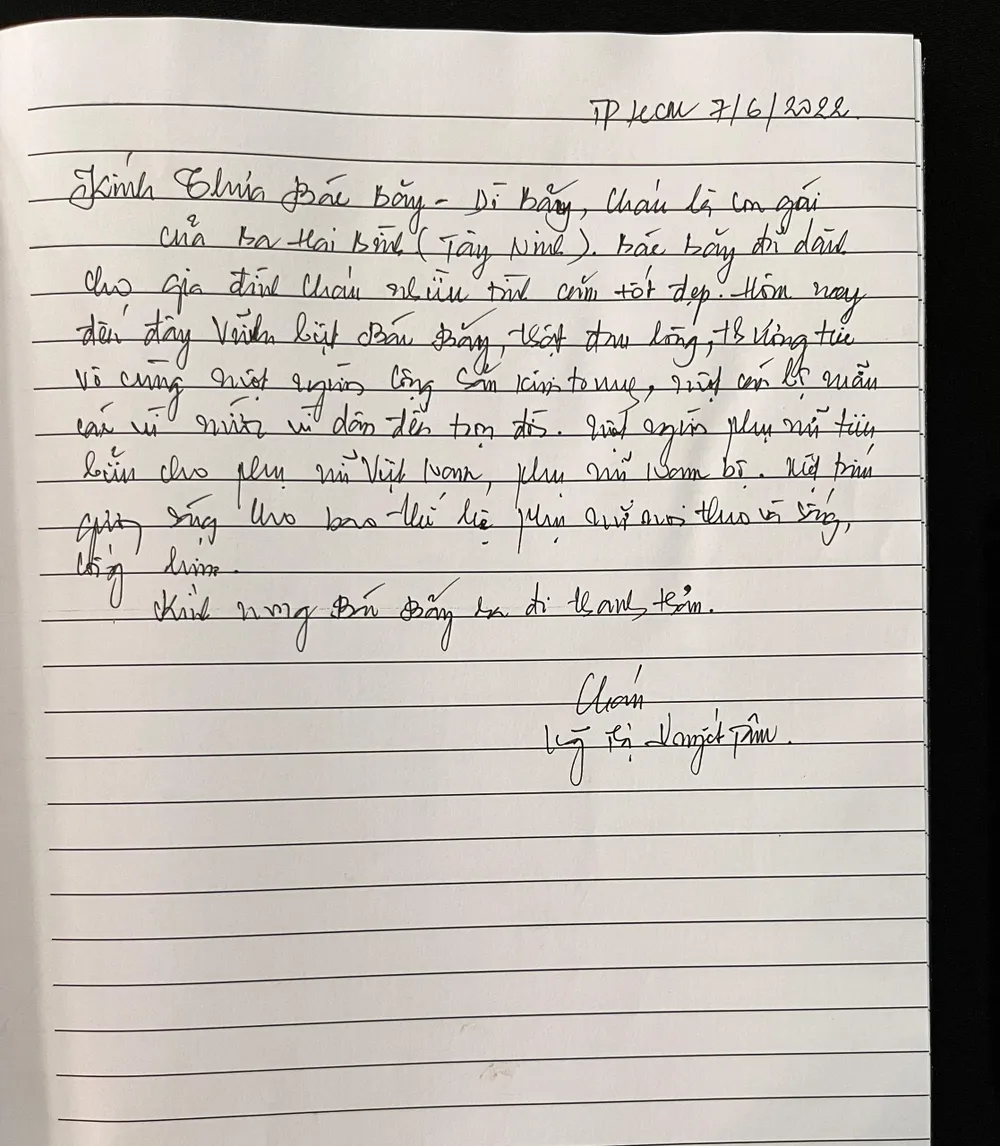 TP HCM 7/6/2022.
Kính Thưa Bác Bảy - Dì Bảy, Cháu là con gái
của Ba Hai Bình (Tây Ninh). Bác Bảy đã dành
cho gia đình Cháu nhiều tình cảm tốt đẹp. Hôm nay
đến đây Vĩnh biệt Bác Bảy, thật đau lòng, thương tiếc
vô cùng một người Cộng Sản kiên trung, một cán bộ mẫu
vì nước vì dân đến trọn đời. Một người phụ nữ tiêu
biểu cho phụ nữ Việt Nam, phụ nữ Nam bộ. Một tấm
gương sáng cho bao thế hệ phụ nữ noi theo và sống,
cống hiến.
Kính mong Bác Bảy ra đi thanh thản.
Cháu
Thị Nguyệt